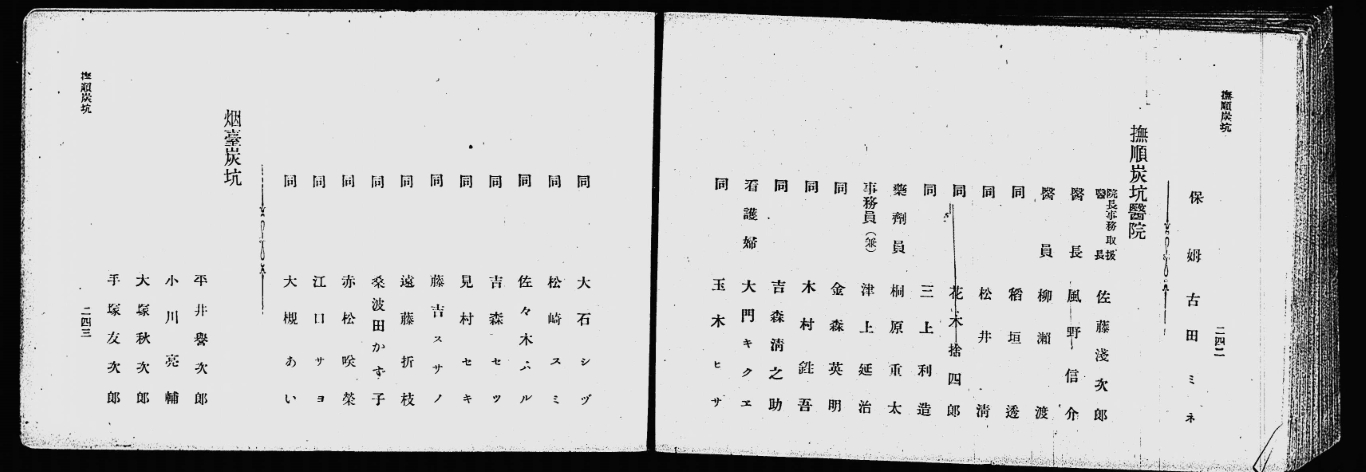 撫順炭坑
二四二
保姆 古田ミネ
撫順炭坑醫院
院長事務取扱
醫長 佐藤淺次郎
醫長 風野信介
醫員 柳瀬渡
同 稻垣透
同 松井清
同 花木捨四郎
同 三上利造
藥劑員 桐原重太
事務員(兼) 津上延治
同 金森英明
同 木村銈吾
同 吉森淸之助
看護婦 大門キクエ
同 玉木ヒサ
同 大石シヅ
同 松崎スミ
同 佐々木ハル
同 吉森セツ
同 見村セキ
同 藤吉スサノ
同 遠藤折枝
同 桑波田かす子
同 赤松咲榮
同 江口サヨ
同 大槻あい
烟臺炭坑
平井譽次郎
小川亮輔
大塚秋次郎
手塚友次郎
撫順炭坑
二四三